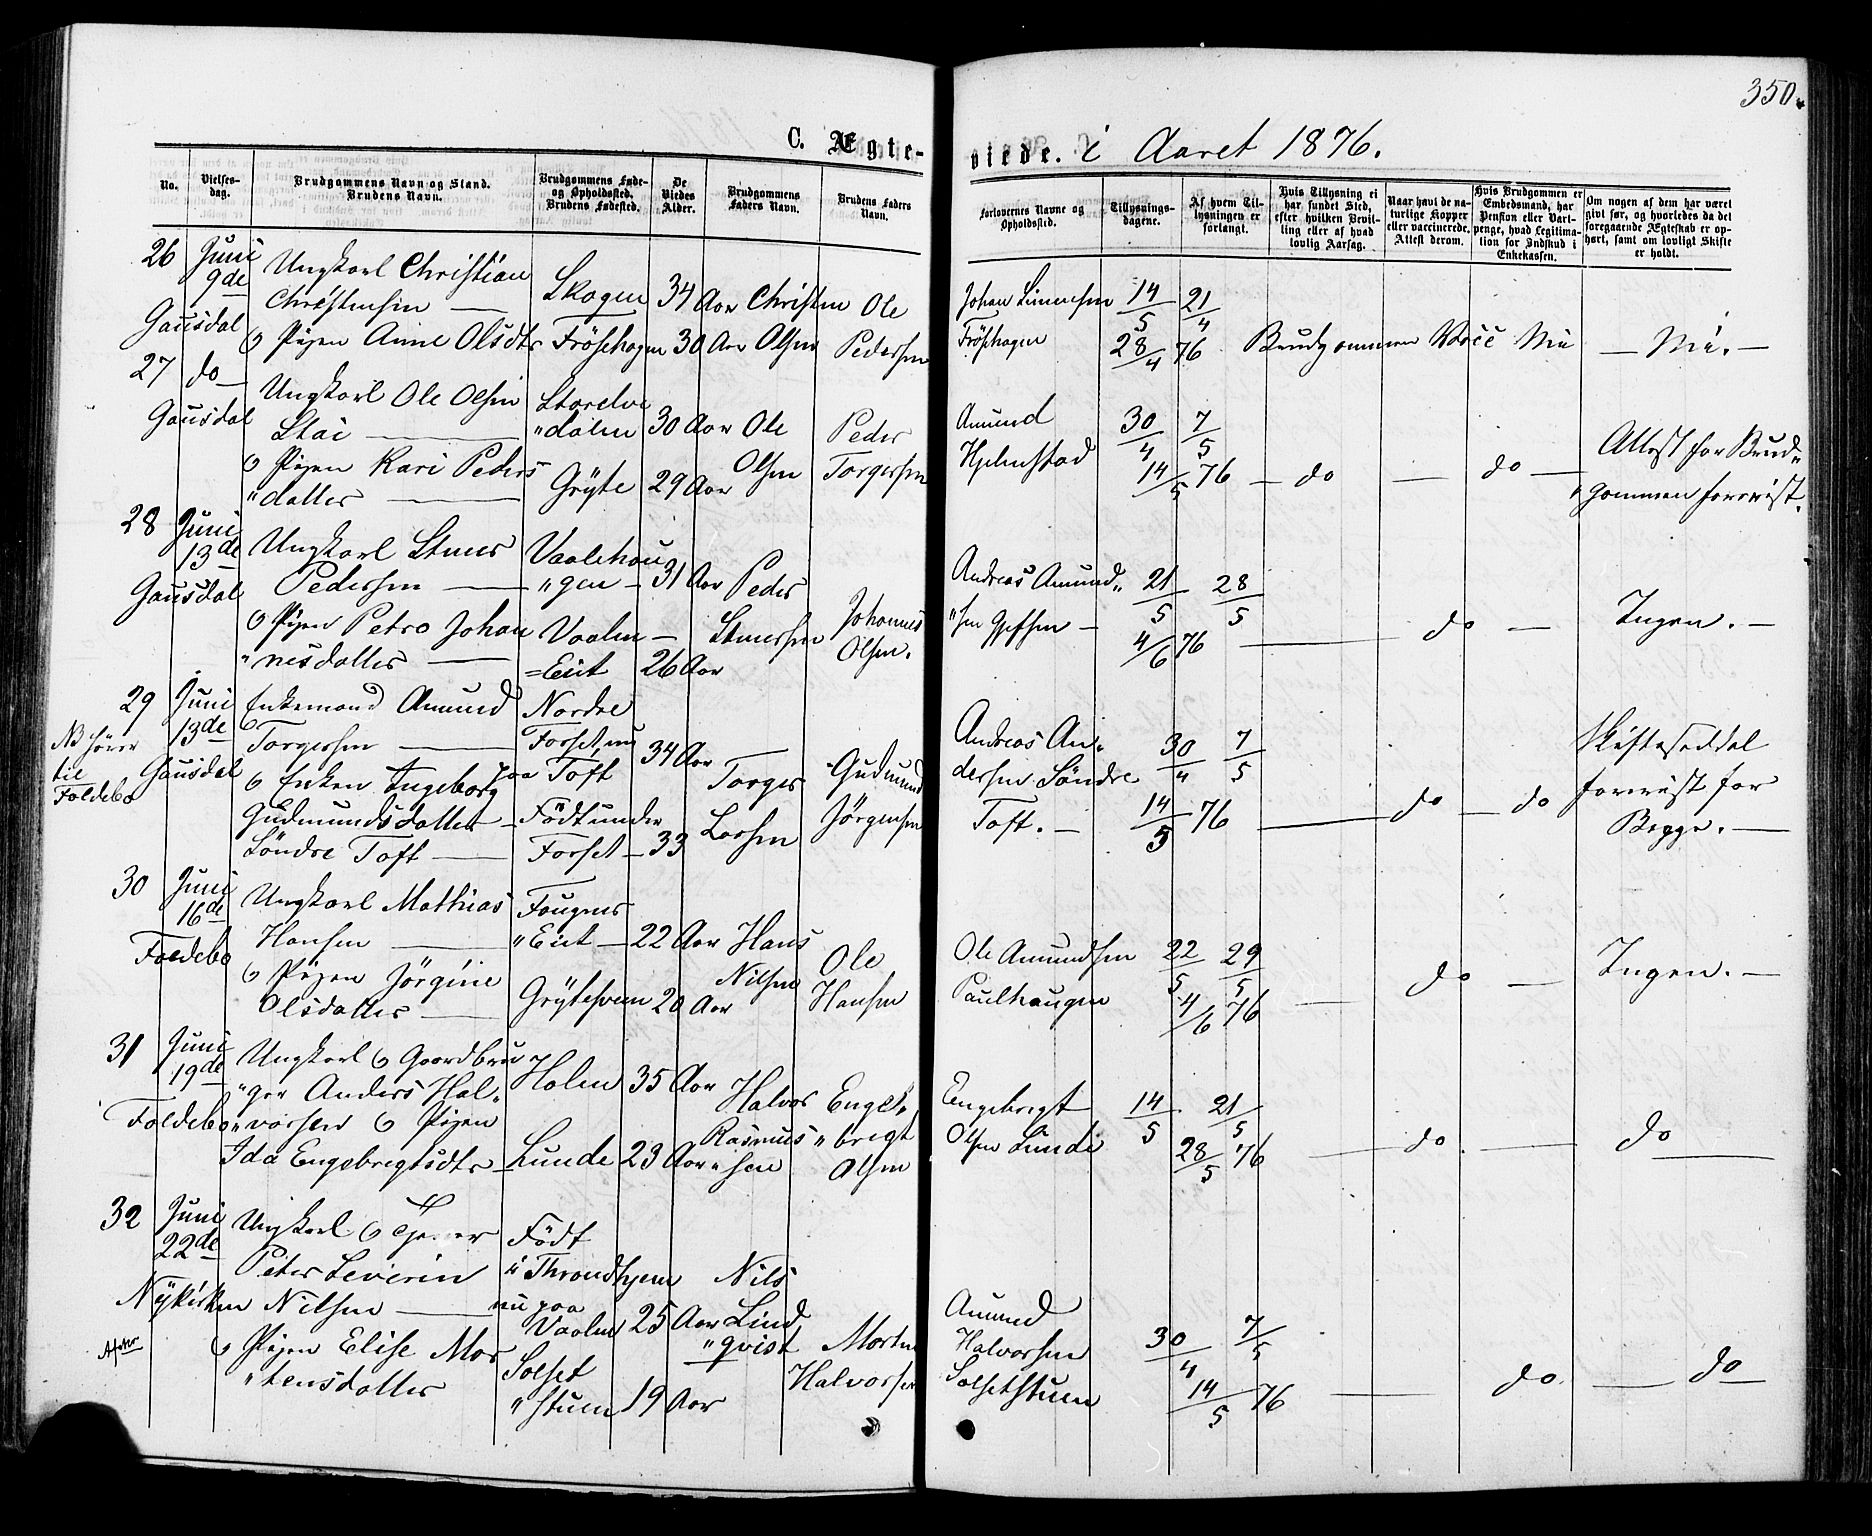 350.
C. Ægte-
viede. i Aaret 1876.
No.
Vielses-
dag.
Brudgommens Navn og Stand.
Brudens Navn.
Brudgommens Føde-
og Opholdssted.
Brudens Fødested.
De
Viedes
Alder.
Brudgommens
Faders Navn.
Brudens Faders
Navn.
Forlovernes Navne og
Opholdssted.
Tillysnings-
dagene.
Af hvem Til-
lysningen er
forlangt.
Hvis Tillysning ei
har fundet Sted,
efter hvilken Bevil-
ling eller af hvad
lovlig Aarsag.
Naar havt de na-
turlige Kopper
eller vaccinerede,
Attest derom.
Hvis Brudgommen er
Embedsmand, har
Pension eller Vart-
penge, hvad Legitima-
tion for Indskud i
Enkekassen.
Om nogen af dem har været
givt før, og hvorledes da det
foregaaende Ægteskab er op-
hørt, samt om lovligt Skifte
er holdt.
26 Juni 9de
Gausdal
Ungkarl Christian
Christensen
& Pigen Anne Olsdtr
Skogen
Fröshogen
34 Aar
30 Aar
Christen
Olsen
Ole
Pedersen
Johan
Fröshogen
14/5 21/4
28/4 76
Brudgommen
27 do
Gausdal
Ungkarl Ole Olsen
Stai
& Pigen Kari Peders
"datter
Storelve
"dalen
Gryte
30 Aar
29 Aar
Ole
Olsen
Peder
Torgersen
Amund
Hjelmstad
30/4 7/5
14/5 76
do
do
Attest for Brud"
"gommen forevist.
28 Juni 13de
Gausdal
Ungkarl Stener
Pedersen
& Pigen Petra Johan
"nesdatter
Vaalehau
"gen
Vaalen
=Eiet
31 Aar
26 Aar
Peder
Stenersen
Johannes
Olsen.
Andreas Amund"
"sen
21/5 28/5
4/6 76
do
Ingen.
29 Juni 13de
NB hører
til
Foldebo
Gausdal
Enkemand Amund
Torgersen
& Enken Ingeborg
Gudmundsdatter
Söndre Toft
Nordre
Forset, nu
paa Toft
Födt under
Forset
34 Aar
33
Torger
Larsen
Gudmund
Jörgensen
Andreas An"
dersen Söndre
Toft.
30/4 7/5
14/5 76
do
do
Skifteseddel
forevist for
Begge.
30 Juni 16de
Foldebo
Ungkarl Mathias
Hansen
& Pigen Jörgine
Olsdatter
Fougner
"Eiet
Grytesveen
22 Aar
20 Aar
Hans
Nilsen
Ole
Hansen
Ole Amundsen
Paulhaugen
22/5 29/5
4/6 76
do
Ingen.
31 Juni 19de
Foldebo
Ungkarl & Gaardbru
"ger Anders Hal"
"vorsen & Pigen
Ida Engebregtsdtr
Holen
Lunde
35 Aar
23 Aar
Halvor
Rasmus
"sen
Engel"
"bregt
Olsen
Engebregt
Olsen Lunde
14/5 21/5
28/5 76
do
do
32 Juni 22de
Nykirken
Ungkarl &
Peter Severin
Nilsen
& Pigen Elise Mor
"tensdatter
Födt
i Throndhjem
nu paa
Vaalen
Solset
"stuen
25 Aar
19 Aar
Nils
Lind
"qvist
Morten
Halvorsen
Amund
Halvorsen
Solsetstuen
30/4 7/5
14/5 76
do
do